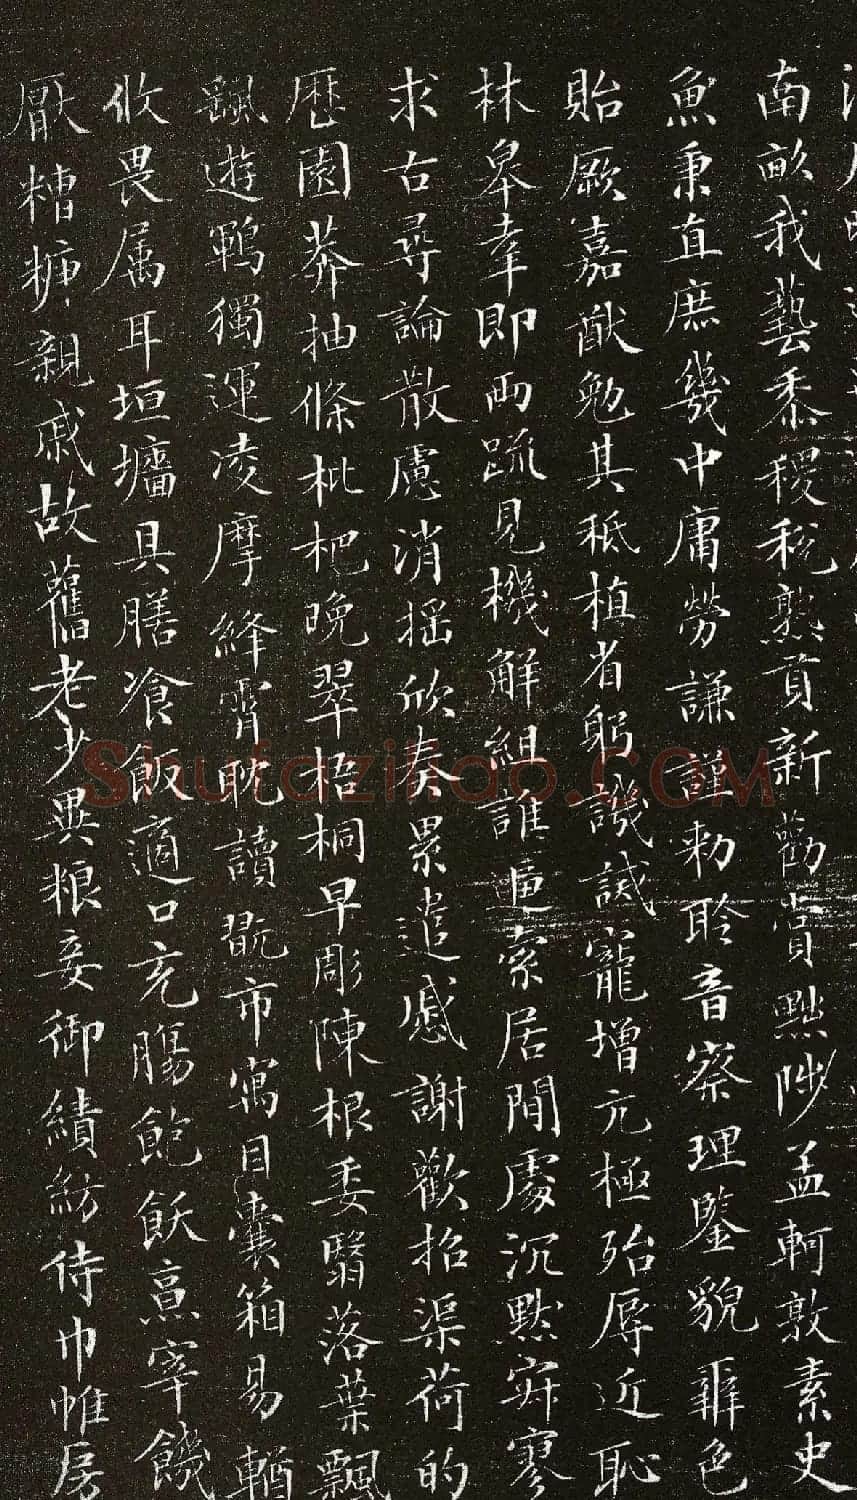 南畝我藝黍稷稅熟貢新勸賞黜陟孟軻敦素史
魚秉直庶幾中庸勞謙謹勑聆音察理鑒貌辯色
貽厥嘉猷勉其祗植省躬譏誡寵增亢極殆辱近恥
林皋幸即兩疏見機解組誰逼索居閒處沉默寂寥
求古尋論散慮逍遙欣奏累遣慼謝歡招渠荷的
歷園莽抽條枇杷晚翠梧桐早彫陳根委翳落葉飄
颻遊鵾獨運凌摩絳霄耽讀翫市寓目囊箱易輶
攸畏属耳垣墻具膳飡飯適口充腸飽飫烹宰饑
厭糟糠親戚故舊老少異粮妾御績紡侍巾帷房
Shufaziliao.COM